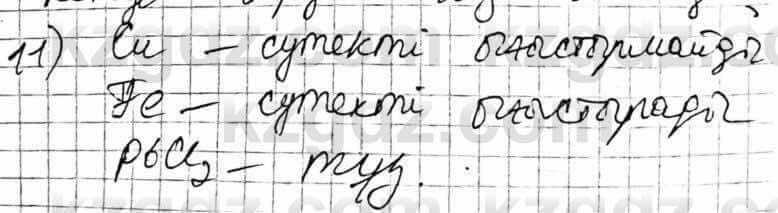 11) Cu – сутекті ығыстырмайды
Fe – сутекті ығыстырады
PbCl₂ – тұз.